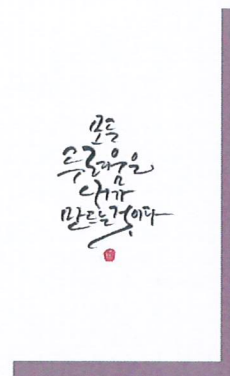 모든
두려움은
내가
만드는것이다